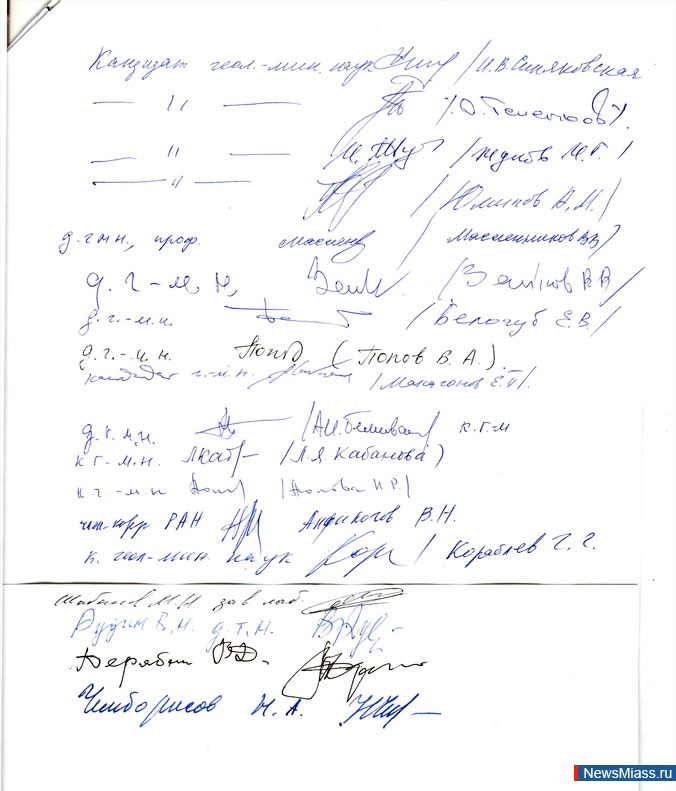 Кандидат геол.-мин. наук /И.В.Синяковская
— // — /О.Теленков/
— // — /Жуков И.Г./
— // — /Юминов А.М./
д.г.м.н., проф. /Масленников ВВ/
д. г-м. н, /Зайков В.В/
д.г.-м.н. /Белогуб Е.В./
д.г.-м.н. Попов (Попов В.А.).
кандидат г.-м.н. /Макагонов Е.П/.
д.г.м.н. к.г-м
к г.-м.н. ЛКаб /Л.Я.Кабанова)
к г.-м.н /Попова И.Р./
чл.-корр РАН Анфилогов В.Н.
к. геол-мин. наук Кор / Кораблев Г.Г.
Шабанов М.Н. зав лаб.
В.Н. д.т.н.
Дерябин ВД.
Чемборисов Н.А.
NewsMiass.ru